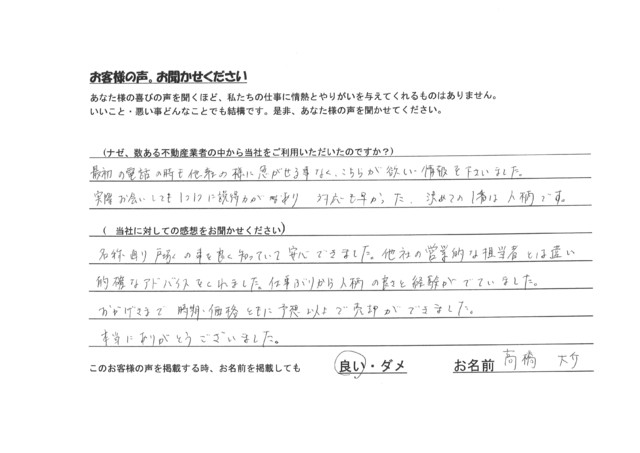 お客様の声。お聞かせください
あなた様の喜びの声を聞くほど、私たちの仕事に情熱とやりがいを与えてくれるものはありません。
いいこと・悪い事どんなことでも結構です。是非、あなた様の声を聞かせてください。
(ナゼ、数ある不動産業者の中から当社をご利用いただいたのですか?)
最初の電話の時も他社の様に急がせる事なく、こちらが欲しい情報を下さいました。
実際お会いしても1つ1つに説得力があり 対応も早かった、決めての1番は人柄です。
( 当社に対しての感想をお聞かせください)
名称通り 戸塚の事を良く知っていて安心できました。他社の営業的な担当者とは違い
的確なアドバイスをくれました。仕事ぶりから人柄の良さと経験がでていました。
おかげさまで 時期・価格ともに予想以上で売却ができました。
本当にありがとうございました。
このお客様の声を掲載する時、お名前を掲載しても 良い・ダメ お名前 高橋 大介